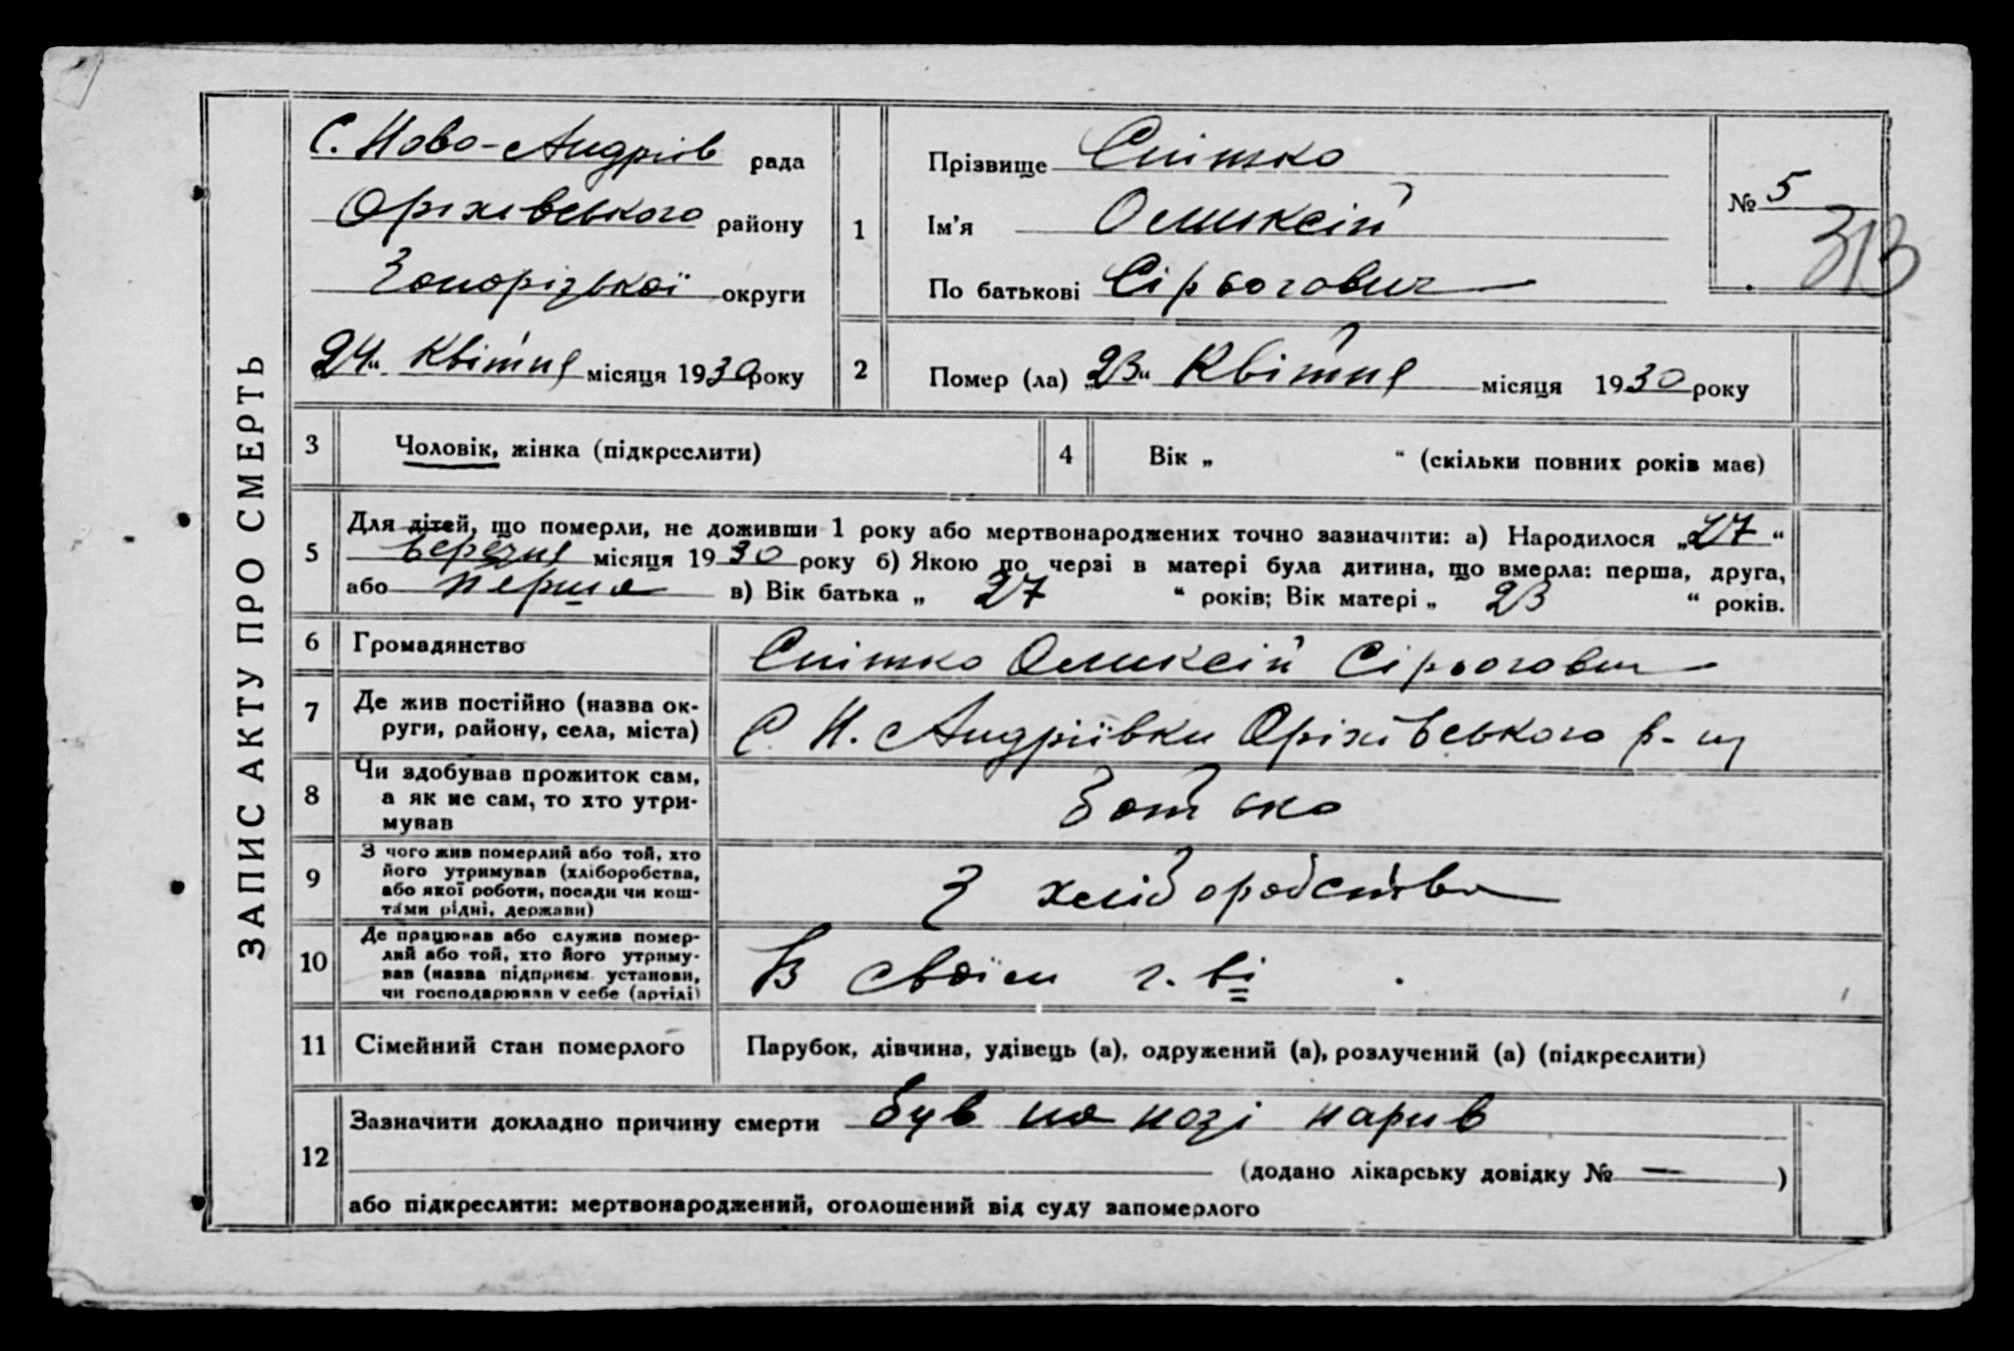 ЗАПИС АКТУ ПРО СМЕРТЬ
С. Ново-Андріїв рада
Оріхівського району
Запорізької округи
24 " Квітня місяця 1930 року
1
Прізвище Спітко
Ім'я Оликсій
По батькові Сірьогович
№ 5
313
2
Помер (ла) „23" Квітня місяця 1930 року
3
Чоловік, жінка (підкреслити)
4
Вік „ " (скільки повних років має)
5
Для дітей, що померли, не доживши 1 року або мертвонароджених точно зазначити: а) Народилося „27"
березня місяця 1930 року б) Якою по черзі в матері була дитина, що вмерла: перша, друга,
або перша в) Вік батька „ 27 " років; Вік матері „ 23 " років.
6
Громадянство
Спітко Оликсій Сірьогович
7
Де жив постійно (назва ок-
руги, району, села, міста)
С. Н. Андріївки Оріхівського р-ну
8
Чи здобував прожиток сам,
а як не сам, то хто утри-
мував
Батько
9
З чого жив померлий або той, хто
його утримував (хліборобства,
або якої роботи, посади чи кош-
тами рідні, держави)
З хліборобства
10
Де працював або служив помер-
лий або той, хто його утриму-
вав (назва підприєм. установи,
чи господарював у себе (артілі)
В своїм г-ві
11
Сімейний стан померлого
Парубок, дівчина, удівець (а), одружений (а), розлучений (а) (підкреслити)
12
Зазначити докладно причину смерти був на нозі нарив
(додано лікарську довідку № — )
або підкреслити: мертвонароджений, оголошений від суду запомерлого